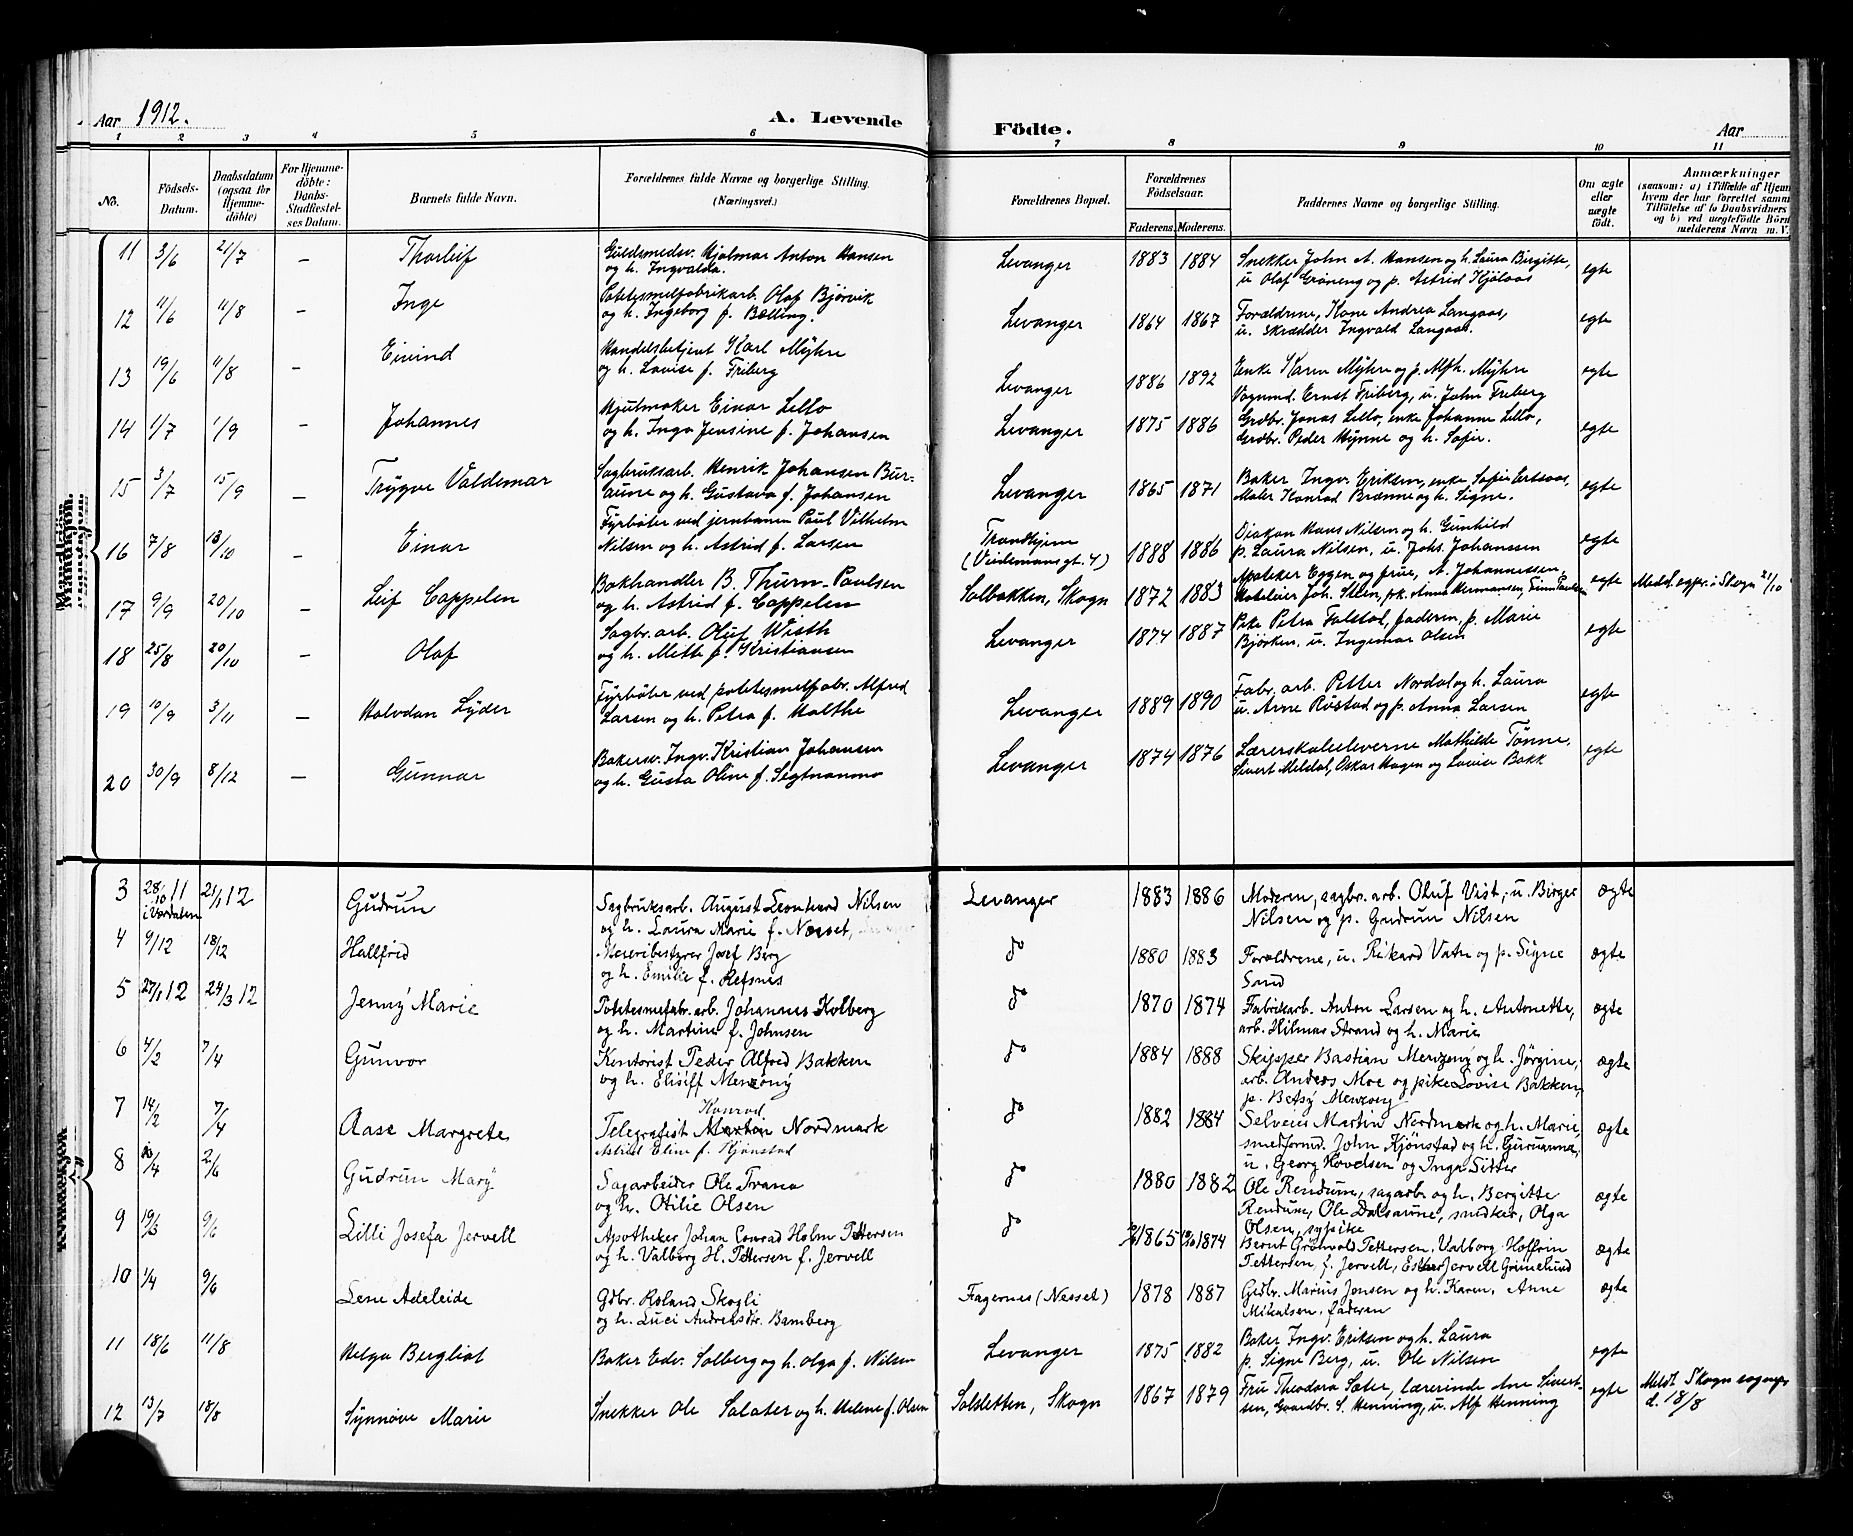 Aar 1912. A. Levende Födte. Aar
1 2 3 4 5 6 7 8 9 10 11
No. Födsels-Datum. Daabsdatum (ogsaa for Hjemmedöbte) For Hjemmedöbte: Daabs-Stadfæstelses Datum. Barnets fulde Navn. Forældrenes fulde Navne og borgerlige Stilling. (Næringsvei.) Forældrenes Bopæl. Forældrenes Födselsaar. Faderens. Moderens. Faddernes Navne og borgerlige Stilling. Om ægte eller uægte født. Anmærkninger
(saasom: a) i Tilfælde af Hjem
hvem der har forrettet samm
Tilföielse af to Daabsvidners
og b) ved uægtefödte Börn
melderens Navn m. V.
Mandkjön.
11 3/6 21/7 – Thorleif Guldsmedsv. Hjalmar Anton Hansen
og h. Ingvalda. Levanger 1883 1884 Snekker John A. Hansen og h. Laura Birgitte,
u Olaf Gröneng og p. Astrid Kjölaas egte
12 11/6 11/8 – Inge Potetesmelfabrikarb. Olaf Bjørvik
og h. Ingeborg f. Bælling. Levanger 1864 1867 Forældrene, Kone Andrea Langaas,
u. skrædder Ingvald Langaas. egte
13 19/6 11/8 – Eivind Handelsbetjent Karl Myhre
og h. Lovise f. Friberg Levanger 1886 1892 Enke Karen Myhre og p. Mth. Myhre
Vognmd. Ernst Friberg, u. John Friberg egte
14 1/7 1/9 – Johannes Hjulmaker Einar Lello
og h. Inga Jensine f. Johansen Levanger 1875 1886 Grdbr. Jonas Lello, enke Johanne Lello,
Grdbr. Peder Hynne og h. Sofie. egte
15 3/7 15/9 – Trygve Valdemar Sagbruksarb. Henrik Johansen Bur-
aune og h. Gustava f. Johansen Levanger 1865 1871 Baker Ingv. Eriksen, enke Sofie Ertsaas,
Maler Konrad Brænne og h. Signe. egte
16 7/8 13/10 – Einar Fyrbøter ved jernbanen Paul Vilhelm
Nilsen og h. Astrid f. Larsen Trondhjem
(Veidemansgt. 4) 1888 1886 Diakon Hans Nilsen og h. Gunhild
p. Laura Nilsen, u. Johs. Johanssen egte
17 9/9 20/10 – Leif Cappelen Bokhandler B. Thurn-Paulsen
og h. Astrid f. Cappelen Solbakken, Skogn 1872 1883 Apoteker Eggen og frue, A. Johannessen,
Hoteleier Joh. Steen, frk. Anna Hermansen, Finn Paulsen egte Meddl. sogpr. i Skogn 21/10
18 25/8 20/10 – Olaf Sagbr. arb. Oluf Wisth
og h. Mette f. Kristiansen Levanger 1874 1887 Pike Petra Falstad, faderen, p. Marie
Bjørken, u. Ingemar Olsen egte
19 10/9 3/11 – Halvdan Lyder Fyrbøter ved potetesmelfabr. Alfred
Larsen og h. Petra f. Malthe Levanger 1889 1890 Fabr. arb. Petter Nordal og h. Laura
u. Arne Røstad og p. Anna Larsen egte
20 30/9 8/12 – Gunnar Bakersv. Ingv. Kristian Johansen
og h. Gusta Oline f. Segtnanmo Levanger 1874 1876 Lærerskoleeleverne Mathilde Tønne,
Sivert Meldal, Oskar Hagen og Lovise Bakk egte
Kvindekjön
3 28/10 11 i Værdalen 21/1 12 Gudrun Sagbruksarb. August Leonhard Nilsen
og h. Laura Marie f. Næsset, Levanger 1883 1886 Moderen, sagbr. arb. Oluf Vist, u. Birger
Nilsen og p. Gudrun Nilsen ægte
4 9/12 18/12 Hallfrid Meieribestyrer Josef Berg
og h. Emilie f. Refsnes do 1880 1883 Forældrene, u. Rikard Vatn og p. Signe
Sand ægte
5 27/1 12 24/3 12 Jenny Marie Potetesmefabr. arb. Johannes Holberg
og h. Martine f. Johnsen do 1870 1874 Fabrikarb. Anton Larsen og h. Antonette,
arb. Hilmar Strand og h. Marie ægte
6 4/2 7/4 Gunvor Kontorist Peder Alfred Bakken
og h. Elisiff Menzony do 1884 1888 Skipper Bastian Menzony og h. Jørgine,
arb. Anders Moe og pike Lovise Bakken,
p. Betsy Menzony ægte
7 14/2 7/4 Aase Margrete Konrad
Telegrafist Martin Nordmark
Astrid Eline f. Kjønstad do 1882 1884 Selveier Martin Nordmark og h. Marie,
smedformd. John Kjønstad og h. Gurianna,
u. Georg Hovelsen og Inga Sitter ægte
8 /4 2/6 Gudrun Mary Sagarbeider Ole Trana
og h. Otilie Olsen do 1880 1882 Ole Rendum, sagarb. og h. Bergitte
Rendum, Ole Dalsaune, snedker, Olga
Olsen, sypike ægte
9 19/3 9/6 Lilli Josefa Jervell Apotheker Johan Conrad Holm Pettersen
og h. Valborg H. Pettersen f. Jervell do 1865 1874 Bernt Grönvold Pettersen, Valborg Hoffrin
Pettersen, f. Jervell, Esther Jervell Grimelund ægte
10 1/4 9/6 Lene Adeleide Gdbr. Roland Skogli
og h. Luci Andreasdr. Bamberg Fagernes (Nesset) 1878 1887 Gedbr. Marius Jensen og h. Karen, Anne
Mikalsen, faderen ægte
11 18/6 11/8 Helga Bergliot Baker Edv. Solberg og h. Olga f. Nilsen Levanger 1875 1882 Baker Ingv. Eriksen og h. Laura
p. Signe Berg, u. Ole Nilsen egte
12 13/7 18/8 Synnøve Marie Snekker Ole Salater og h. Helene f. Olsen Solsletten, Skogn 1867 1879 Fru Theodora Sæter, lærerinde Ane Sivert-
sen, Gaardbr. S. Henning, u. Alf Henning egte Meldt Skogn sognepr
d. 18/8